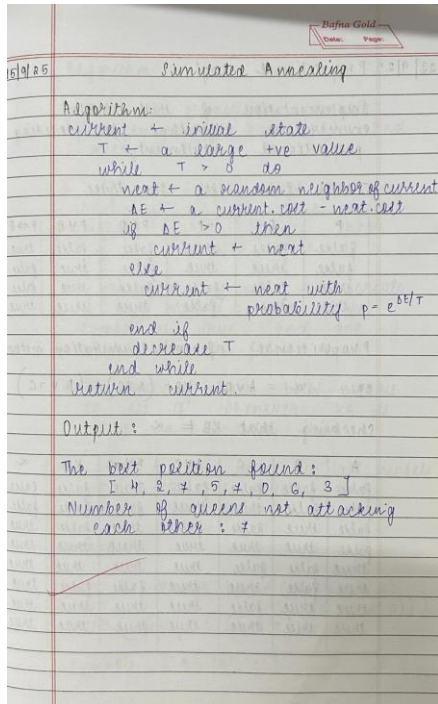 Bafna Gold
Date: Page:
15/9/25 Simulated Annealing
Algorithm:
current ← initial state
T ← a large +ve value
while T > 0 do
next ← a random neighbor of current
ΔE ← a current.cost - next.cost
if ΔE > 0 then
current ← next
else
current ← next with
probability p = e^ΔE/T
end if
decrease T
end while
return current.
Output :
The best position found :
[ 4, 2, 7, 5, 7, 0, 6, 3 ]
Number of queens not attacking
each other : 7